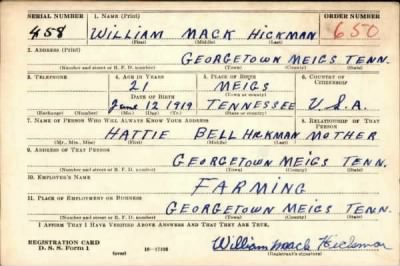 SERIAL NUMBER 1. NAME (Print) ORDER NUMBER
458 WILLIAM MACK HICKMAN 650
(First) (Middle) (Last)
2. ADDRESS (Print)
GEORGETOWN MEIGS TENN.
(Number and street or R. F. D. number) (Town) (County) (State)
3. TELEPHONE 4. AGE IN YEARS 5. PLACE OF BIRTH 6. COUNTRY OF CITIZENSHIP
21 MEIGS
DATE OF BIRTH (Town or county)
June 12 1919 TENNESSEE U.S.A.
(Exchange) (Number) (Mo.) (Day) (Yr.) (State or country)
7. NAME OF PERSON WHO WILL ALWAYS KNOW YOUR ADDRESS 8. RELATIONSHIP OF THAT PERSON
HATTIE BELL HICKMAN MOTHER
(Mr., Mrs., Miss) (First) (Middle) (Last)
9. ADDRESS OF THAT PERSON
GEORGETOWN MEIGS TENN.
(Number and street or R. F. D. number) (Town) (County) (State)
10. EMPLOYER'S NAME
FARMING
11. PLACE OF EMPLOYMENT OR BUSINESS
GEORGETOWN MEIGS TENN.
(Number and street or R. F. D. number) (Town) (County) (State)
I AFFIRM THAT I HAVE VERIFIED ABOVE ANSWERS AND THAT THEY ARE TRUE.
REGISTRATION CARD
D. S. S. Form 1 William Mack Hickman
(over) (Registrant's signature)